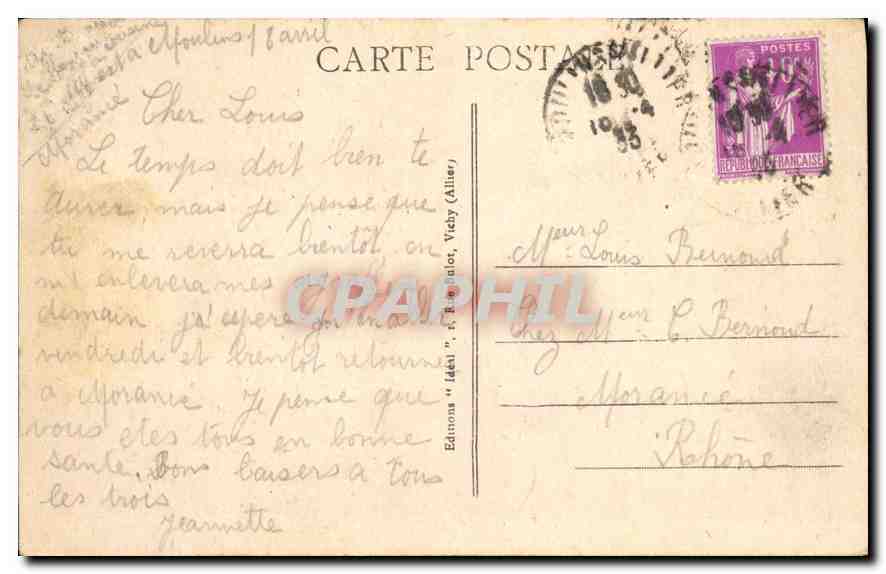 CARTE POSTALE
a Moulins / 8 avril
Moranié
Cher Louis
Le temps doit bien te
durer, mais je pense que
tu me reverra bientôt, on
m'enlevera mes
demain j'espere
vendredi et bientot retourner
a Moranié. Je pense que
vous etes tous en bonne
santé. Bons baisers a tous
les trois
Jeannette
Editions "Idéal", Rue Bulot, Vichy (Allier)
POSTES
REPUBLIQUE FRANÇAISE
18 30
Meur Louis Bernoud
Chez Meur C. Bernoud
Moranié
Rhône
CPAPHIL